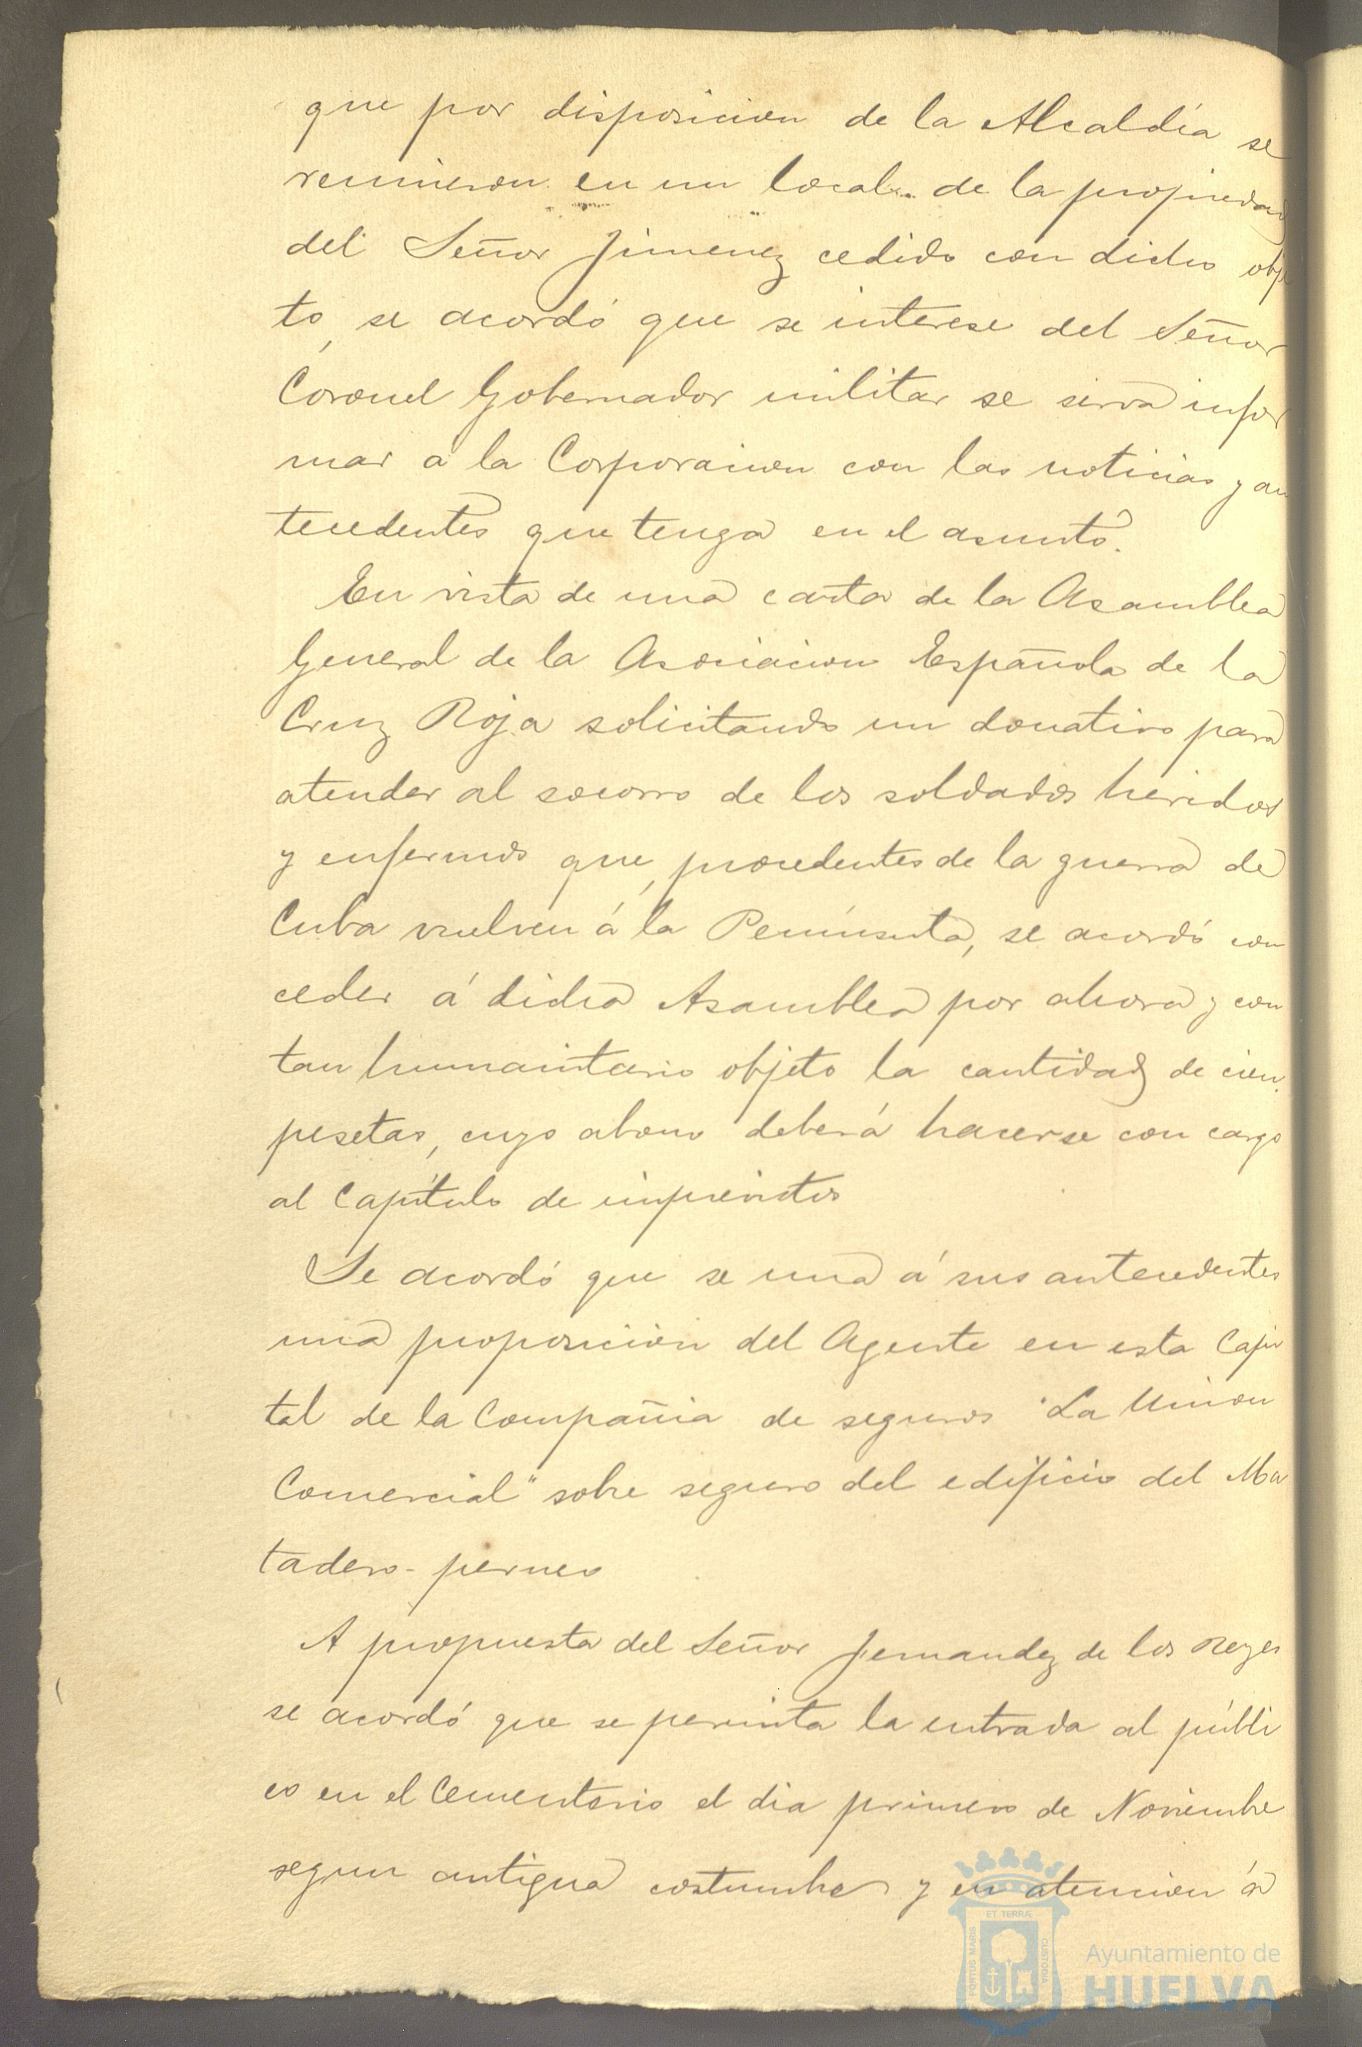 que por disposicion de la Alcaldía se
reunieron en un local de la propiedad
del Señor Jimenez cedido con dicho obje
to, se acordó que se interese del Señor
Coronel Gobernador militar se sirva infor
mar á la Corporacion con las noticias y an
tecedentes que tenga en el asunto.
En vista de una carta de la Asamblea
General de la Asociacion Española de la
Cruz Roja solicitando un donativo para
atender al socorro de los soldados heridos
y enfermos que, procedentes de la guerra de
Cuba vuelven á la Península, se acordó con
ceder á dicha Asamblea por ahora y con
tan humanitario objeto la cantidad de cien
pesetas, cuyo abono deberá hacerse con cargo
al Capítulo de imprevistos
Se acordó que se una á sus antecedentes
una proposición del Agente en esta Capi
tal de la Compañia de seguros "La Union
Comercial" sobre seguro del edificio del Ma
tadero-perneo
A propuesta del Señor Fernandez de los Reyes
se acordó que se permita la entrada al públi
co en el Cementerio el dia primero de Noviembre
segun antigua costumbre y en atencion á
PORTUS MARIS
ET TERRÆ
CUSTODIA
Ayuntamiento de
HUELVA